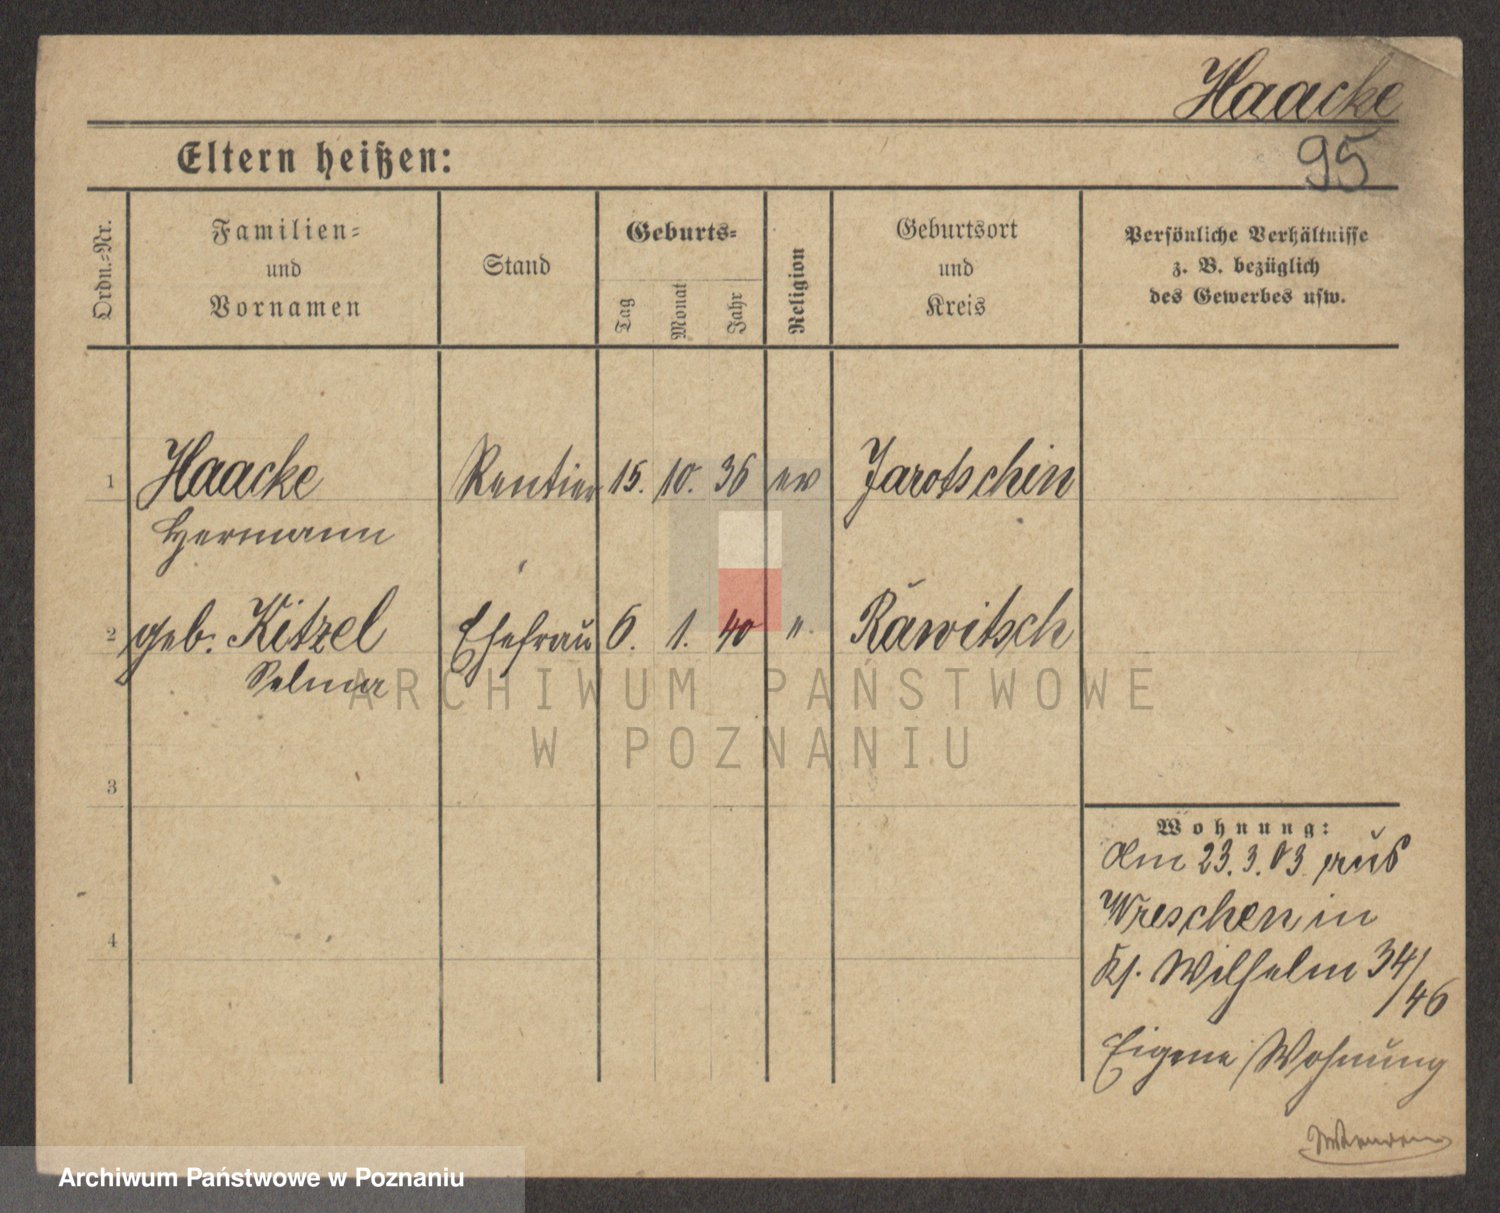 Haacke
95
Eltern heißen:
Ordn.-Nr.
Familien-
und
Vornamen
Stand
Geburts-
Tag
Monat
Jahr
Religion
Geburtsort
und
Kreis
Persönliche Verhältnisse
z. B. bezüglich
des Gewerbes usw.
1 Haacke Rentier 15. 10. 36 ev Jarotschin
Hermann
2 geb. Kitzel Ehefrau 6. 1. 40 " Rawitsch
Selma
ARCHIWUM PAŃSTWOWE
W POZNANIU
3
4
Wohnung:
Am 23.3.03 aus
Wreschen in
Ks. Wilhelm 34/
/46
Eigene Wohnung
Archiwum Państwowe w Poznaniu